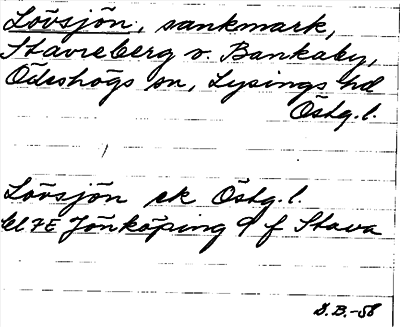 Lövsjön, sankmark,
Stavreberg v. Bankaby,
Ödeshögs sn, Lysings hd
Östg.l.
Lövsjön ek Östg.l.
bl 7E Jönköping 9 f Stava
S.B.-58